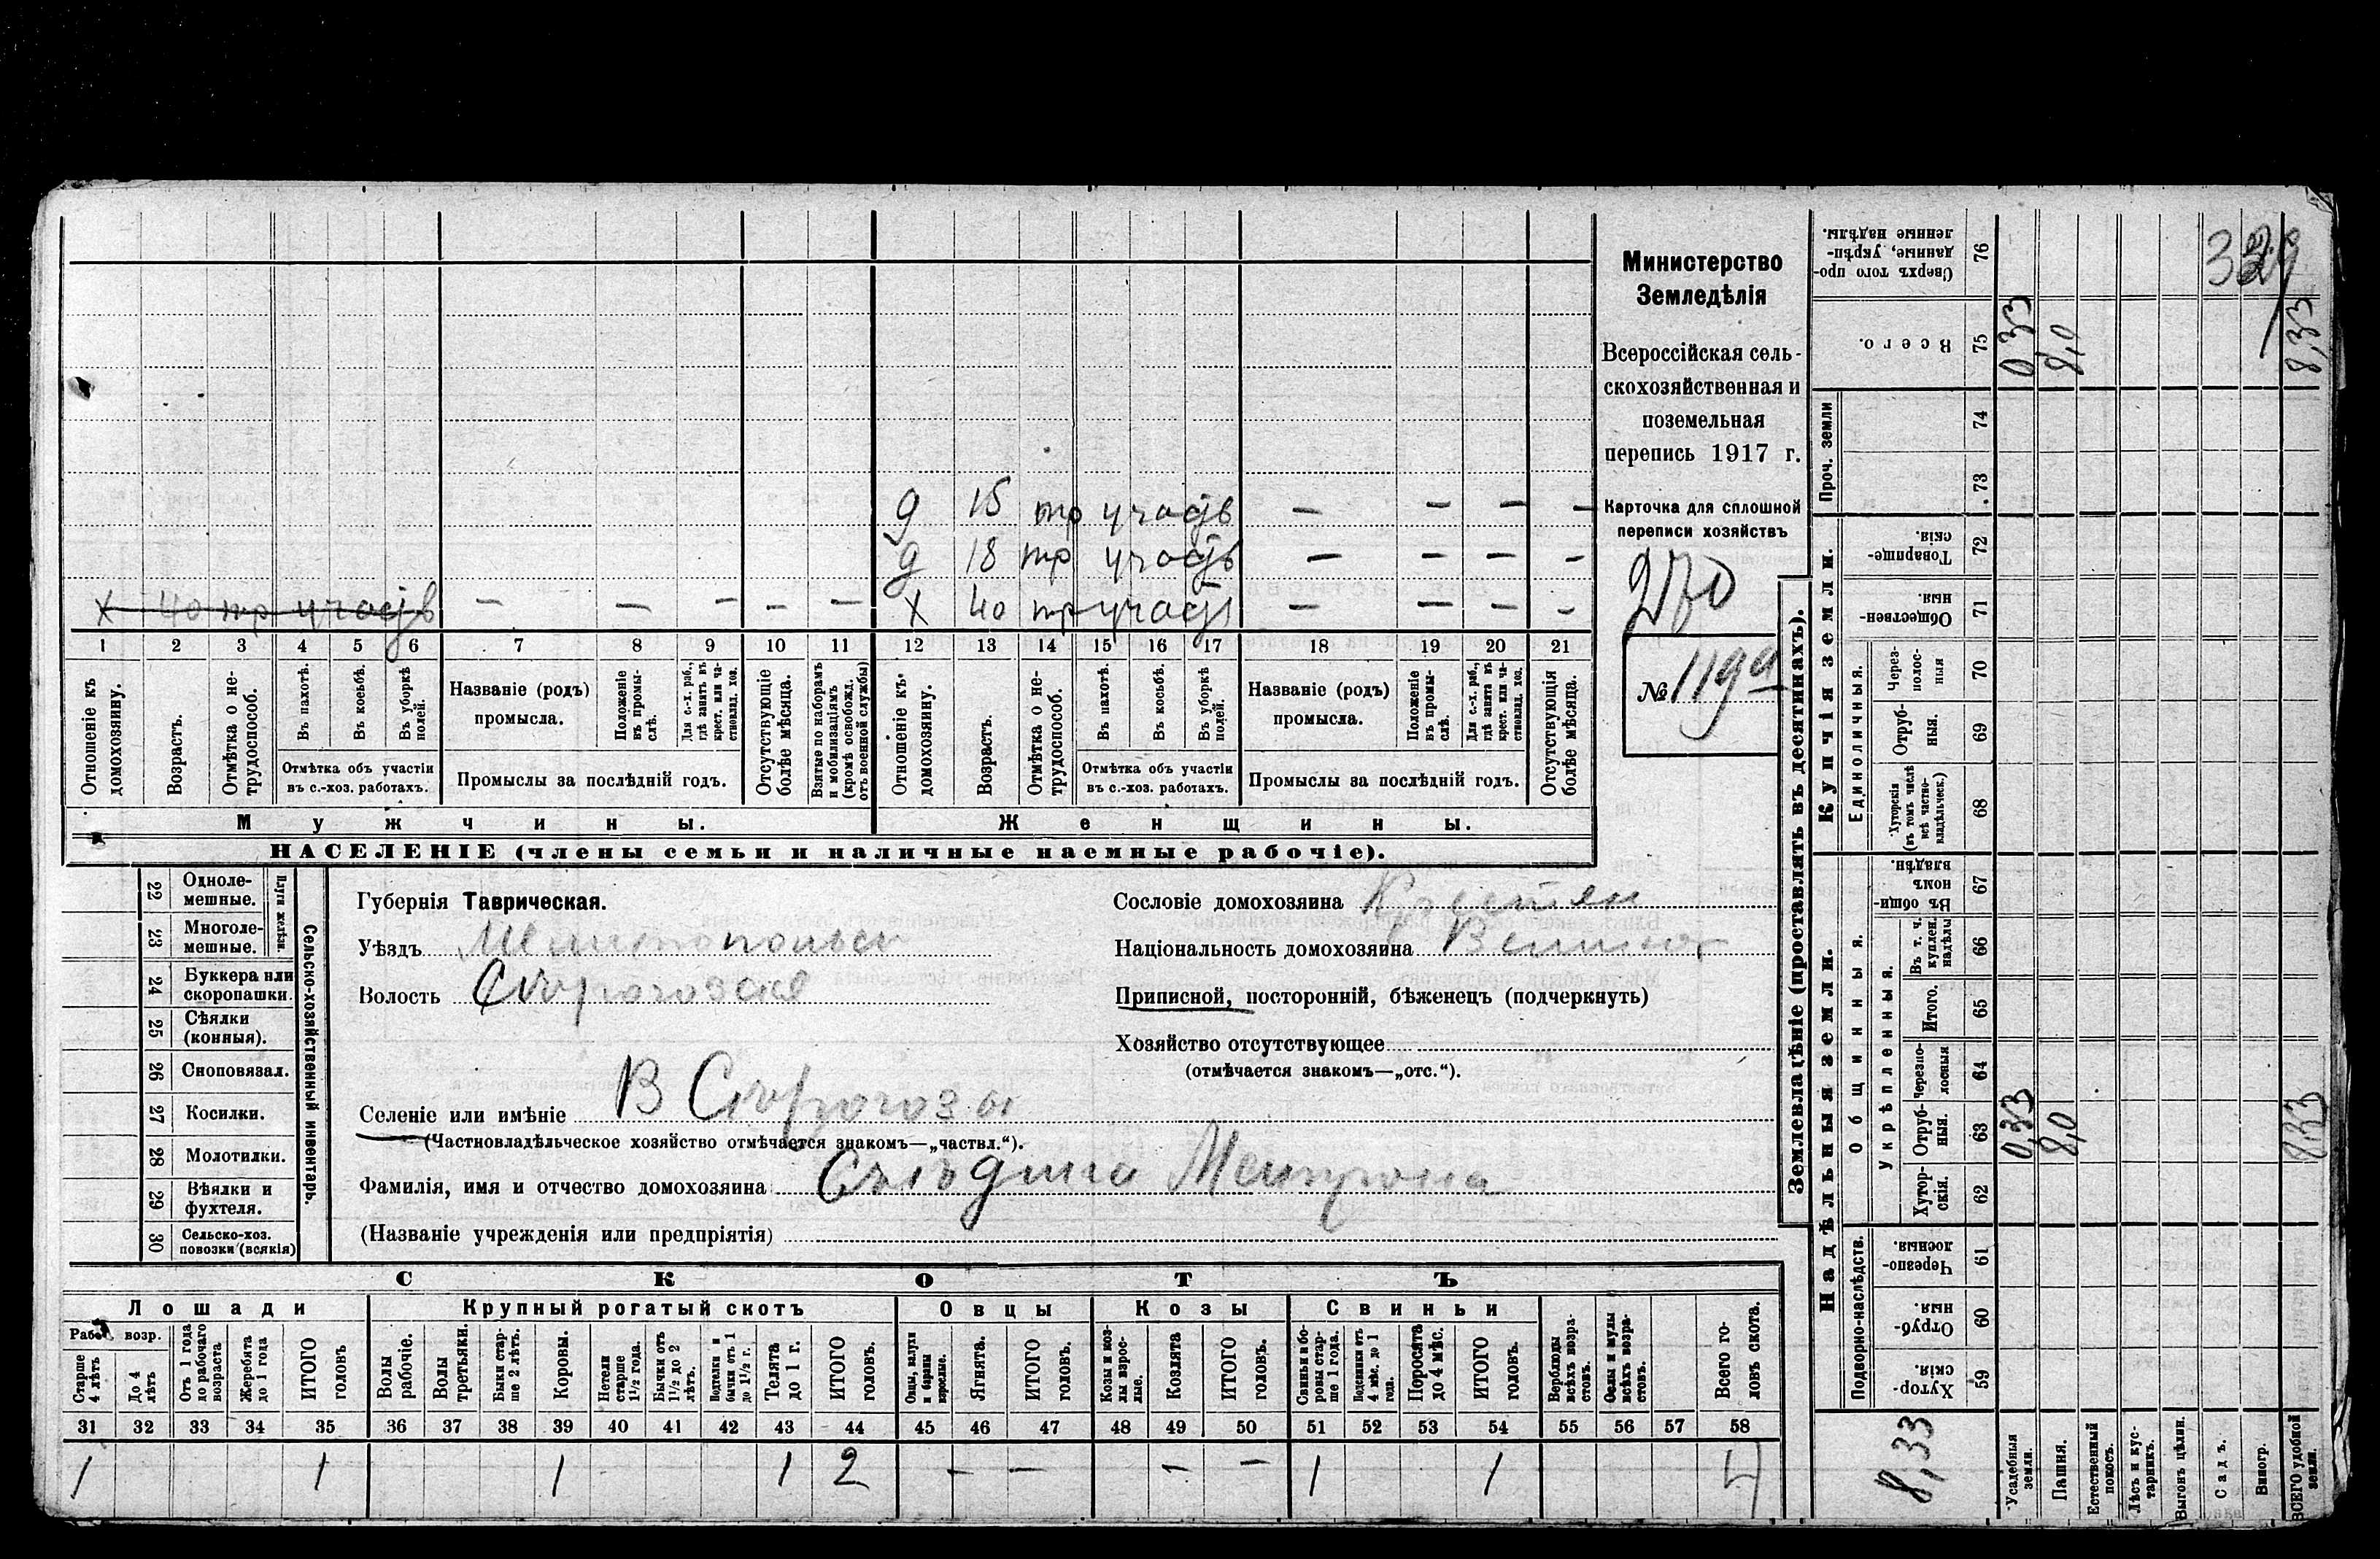 д 15 тр участв — — — —
д 18 тр участв — — — —
х 40 тр участв — — — — — х 40 тр участв — — — —
1 2 3 4 5 6 7 8 9 10 11 12 13 14 15 16 17 18 19 20 21
Отношеніе къ домохозяину.
Возрастъ.
Отмѣтка о не-трудоспособ.
Въ пахотѣ.
Въ косьбѣ.
Въ уборкѣ полей.
Отмѣтка объ участіи
въ с.-хоз. работахъ.
Названіе (родъ)
промысла.
Положеніе въ промы-слѣ.
Для с.-х. раб., гдѣ занятъ въ крест. или ча-стновлад. хоз.
Промыслы за послѣдній годъ.
Отсутствующіе болѣе мѣсяца.
Взятые по наборамъ и мобилизаціямъ (кромѣ освобожд. отъ военной службы)
Отношеніе къ домохозяину.
Возрастъ.
Отмѣтка о не-трудоспособ.
Въ пахотѣ.
Въ косьбѣ.
Въ уборкѣ полей.
Отмѣтка объ участіи
въ с.-хоз. работахъ.
Названіе (родъ)
промысла.
Положеніе въ промы-слѣ.
Для с.-х. раб., гдѣ занята въ крест. или ча-стновлад. хоз.
Промыслы за послѣдній годъ.
Отсутствующія болѣе мѣсяца.
Мужчины. Женщины.
НАСЕЛЕНІЕ (члены семьи и наличные наемные рабочіе).
Министерство
Земледѣлія
Всероссійская сель-
скохозяйственная и
поземельная
перепись 1917 г.
Карточка для сплошной
переписи хозяйствъ
270
№ 119а
22 Одноле-мешные.
23 Многоле-мешные.
Плуги желѣзн.
24 Буккера или скоропашки.
25 Сѣялки (конныя).
26 Сноповязал.
27 Косилки.
28 Молотилки.
29 Вѣялки и фухтеля.
30 Сельско-хоз. повозки (всякія)
Сельско-хозяйственный инвентарь.
Губернія Таврическая.
Уѣздъ Мелитопольск
Волость
Селеніе или имѣніе В
(Частновладѣльческое хозяйство отмѣчается знакомъ—„частвл.“).
Фамилія, имя и отчество домохозяина
(Названіе учрежденія или предпріятія)
Сословіе домохозяина Крестян
Національность домохозяина
Приписной, посторонній, бѣженецъ (подчеркнуть)
Хозяйство отсутствующее
(отмѣчается знакомъ—„отс.“).
СКОТЪ
Лошади Крупный рогатый скотъ Овцы Козы Свиньи
Рабоч. возр.
Старше 4 лѣтъ
До 4 лѣтъ
Отъ 1 года до рабочаго возраста
Жеребята до 1 года
ИТОГО головъ
Волы рабочіе.
Волы третьяки.
Быки стар-ше 2 лѣтъ.
Коровы.
Нетели старше 1½ года.
Бычки отъ 1½ до 2 лѣтъ.
Водтелки и бычки отъ 1 до 1½ г.
Телята до 1 г.
ИТОГО головъ.
Овцы, валухи и бараны взрослые.
Ягнята.
ИТОГО головъ.
Козы и коз-лы взрос-лые.
Козлята
ИТОГО головъ.
Свиньи и бо-ровы стар-ше 1 года.
Подсвинки отъ 4 мѣс. до 1 года.
Поросята до 4 мѣс.
ИТОГО головъ.
Верблюды всѣхъ возра-стовъ.
Ослы и мулы всѣхъ возра-стовъ.
Всего го-ловъ скота.
31 32 33 34 35 36 37 38 39 40 41 42 43 44 45 46 47 48 49 50 51 52 53 54 55 56 57 58
1 1 1 1 2 — — — — 1 1 4
Землевладѣніе (проставлять въ десятинахъ).
Надѣльныя земли. Купчія земли. Проч. земли
Подворно-наслѣдств.
Общинныя.
Укрѣпленныя.
Единоличныя.
Хутор-скія. 59
Отруб-ныя. 60
Черезпо-лосныя. 61
Хутор-скія. 62
Отруб-ныя. 63
Черезпо-лосныя 64
Итого. 65
Въ т. ч. куплен. надѣлы 66
Въ общи-номъ владѣн. 67
Хуторскія (въ томъ числѣ всѣ частно-владѣльческ.) 68
Отруб-ныя. 69
Через-полос-ныя 70
Обществен-ныя. 71
Товарище-скія. 72
73
74
Всего. 75
Сверхъ того про-данные, укрѣп-ленные надѣлы. 76
Усадебныя земли. 0,33 0,33
Пашня. 8,0 8,0
Естественный покосъ.
Лѣсъ и кус-тарникъ.
Выгонъ цѣлин.
Садъ.
Виногр.
ВСЕГО удобной земли. 8,33 8,33
8,33